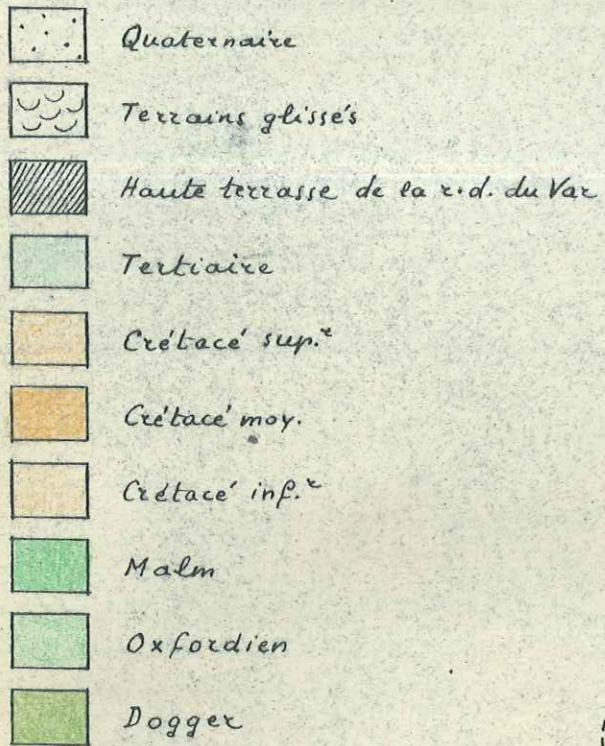 Quaternaire
Terrains glissés
Haute terrasse de la r.d. du Var
Tertiaire
Crétacé sup.ʳ
Crétacé moy.
Crétacé inf.ʳ
Malm
Oxfordien
Dogger